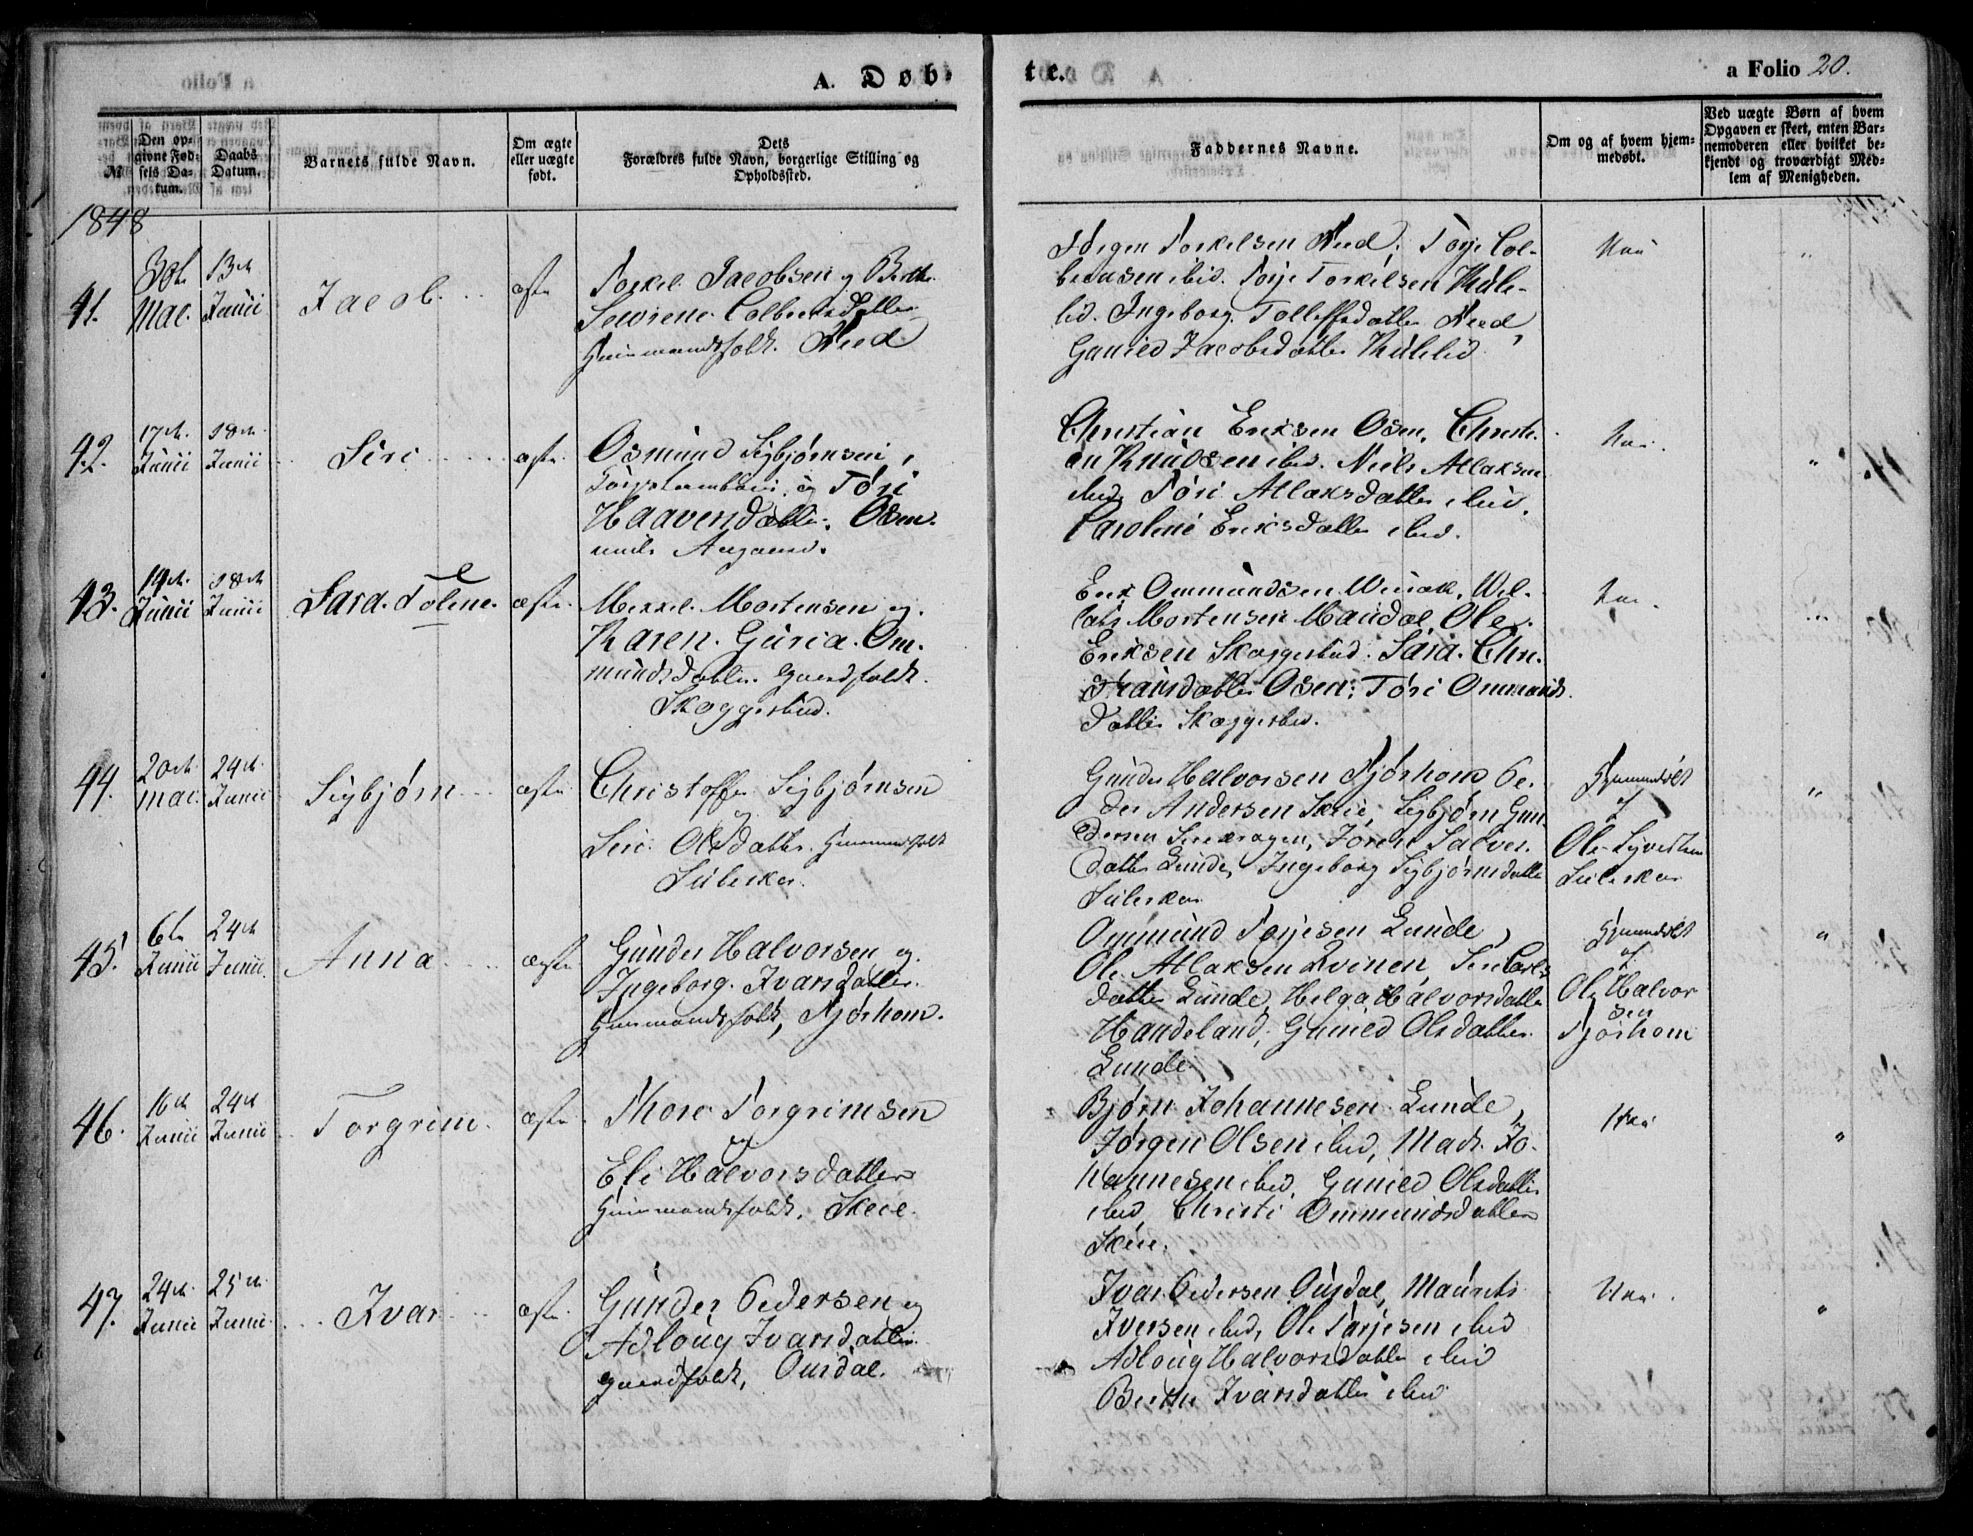 A. Døb-
te.
a Folio 20.
№
Den opgivne Fødsels Datum.
Daabs Datum.
Barnets fulde Navn.
Om ægte eller uægte født.
Dets Forældres fulde Navn, borgerlige Stilling og Opholdssted.
Faddernes Navne.
Om og af hvem hjemmedøbt.
Ved uægte Børn af hvem Opgaven er skeet, enten Barnemoderen eller hvilket bekjendt og troværdigt Medlem af Menigheden.
1848
41.
30te Mai.
13de Junii
Jacob.
ægte
Torkel Jacobsen og Berthe
Sewrine Colbensdatter
Huusmandsfolk. Meed
Jørgen Torkelsen Meed, Torje Col-
bensen ibid. Torje Torkelsen
lid. Ingeborg Tollefsdatter Meed,
Gunild Jacobsdatter
Nei
42.
17de Junii
18de Junii
Siri
ægte.
Osmund Sigbjørnsen,
og Tøri
Haavensdatter. Osen.
Christian Eriksen Osen, Christi-
an Knudsen ibid. Niels Atlaksen
ibid, Tøri Atlaksdatter ibid.
Caroline Eriksdatter ibid.
Nei.
43.
14de Junii
18de Junii
Sara. Toline.
ægte.
Mikkel Mortensen og
Karen. Guria. Om-
mundsdatter. Gaardfolk.
Skoggestad.
Erik Ommundsen
Mortensen Mandal, Ole
Eriksen Skaggestad. Sara. Chri-
stiansdatter Osen. Tøri Ommunds-
datter Skaggestad.
Nei.
44.
20de Mai.
24de Junii
Sigbjørn
ægte
Christoffer Sigbjørnsen
og
Siri Olsdatter. Huusmandsfolk
Suleskar.
Gunder Halvorsen Fjørhom Pe-
der Andersen Skeie, Sigbjørn Gun-
dersen Joren Salve-
datter Lunde, Ingeborg Sigbjørnsdatter
Suleskar
Hjemmedøbt
af
Ole
Suleskar
45.
6te Junii
24de Junii.
Anna
ægte
Gunder Halvorsen og
Ingeborg. Ivarsdatter.
Huusmandsfolk, Fjørhom.
Ommund Torjesen Lunde,
Ole Atlaksen Kvinen, Siri Carls-
datter Lunde, Helga Halvorsdatter
Handeland, Gunild Olsdatter
Lunde
Hjemmedøbt
af
Ole Halvor
sen
Fjørhom
46.
16de Junii
24de Junii
Torgrim.
ægte.
Thore Torgrimsen
og
Eli Halvorsdatter
Huusmandsfolk. Skeie.
Bjørn Johannesen Lunde,
Jørgen Olsen ibid, Mads Jo-
hannesen ibid, Gunild Olsdatter
ibid, Christi Ommundsdatter
Skeie.
Nei
47.
24de Junii
25de Junii.
Ivar
ægte.
Gunder Pedersen og
Adloug Ivarsdatter.
Gaardfolk, Ousdal.
Ivar Pedersen Ousdal, Maurits
Iversen ibid, Ole Torjesen ibid
Adloug Halvorsdatter ibid
Berthe Ivarsdatter ibid
Nei.